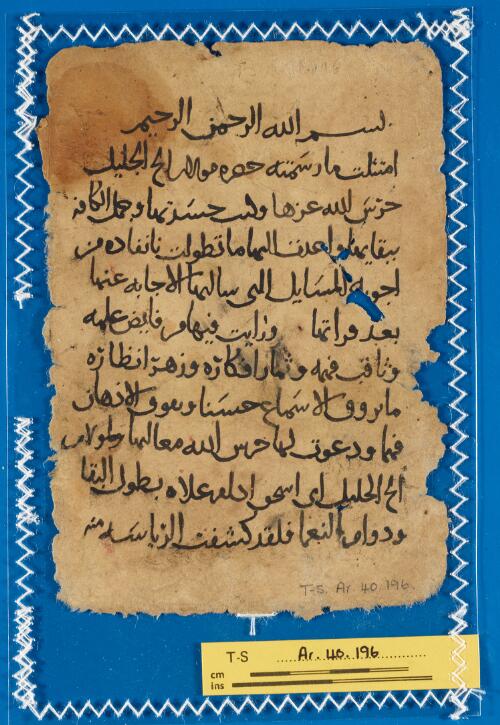 بسم الله الرحمن الرحيم
امتثلت ما رسمته حضره مولاى الشيخ الجليل
حرس الله عزها وكبت حسدتها وجمل الكافه
ببقايها واعدت اليها ما تطولت بانفاده من
اجوبه المسايل التى سالتها الاجابه عنها
بعد قراتها ورايت فيها من فايض علمه
وثاقب فهمه وثمار افكاره وزهره انظاره
ما يروق الاسماع حسنا ويفوق الاذهان
فهما ودعوت لها حرس الله معاليها ولمولاى
الشيخ الجليل ابى اسحق ادام علاه بطول البقا
ودوام النعما فلقد كشفت الرياسه منه
T-S. Ar 40.196
T-S Ar. 40. 196
cm
ins